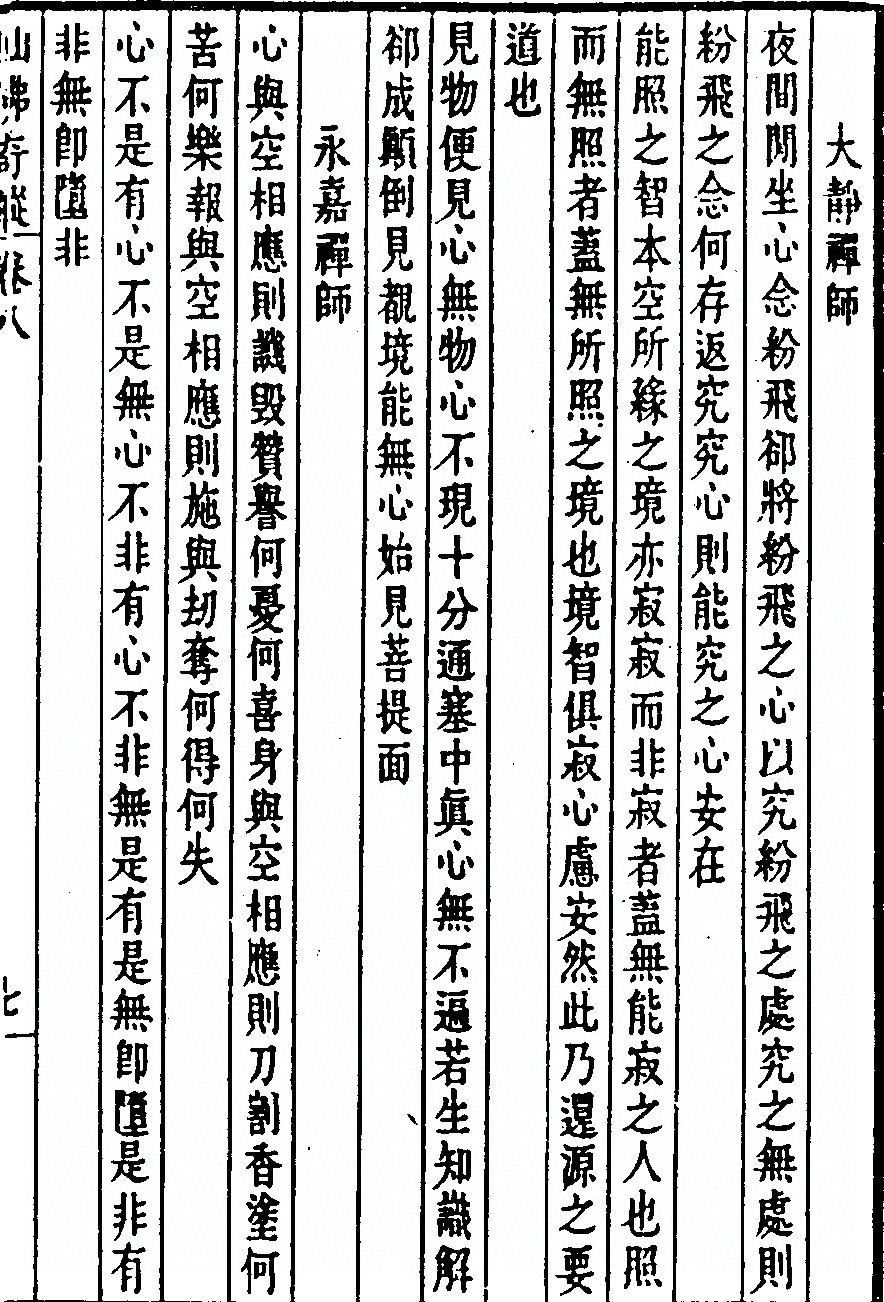 大靜禪師
夜間閒坐心念紛飛卻將紛飛之心以究紛飛之處究之無處則
紛飛之念何存返究究心則能究之心安在
能照之智本空所緣之境亦寂寂而非寂者蓋無能寂之人也照
而無照者蓋無所照之境也境智俱寂心慮安然此乃還源之要
道也
見物便見心無物心不現十分通塞中眞心無不遍若生知識解
卻成顚倒見覩境能無心始見菩提面
永嘉禪師
心與空相應則譏毀贊譽何憂何喜身與空相應則刀割香塗何
苦何樂報與空相應則施與劫奪何得何失
心不是有心不是無心不非有心不非無是有是無卽墮是非有
非無卽墮非
仙佛奇蹤 卷八 七